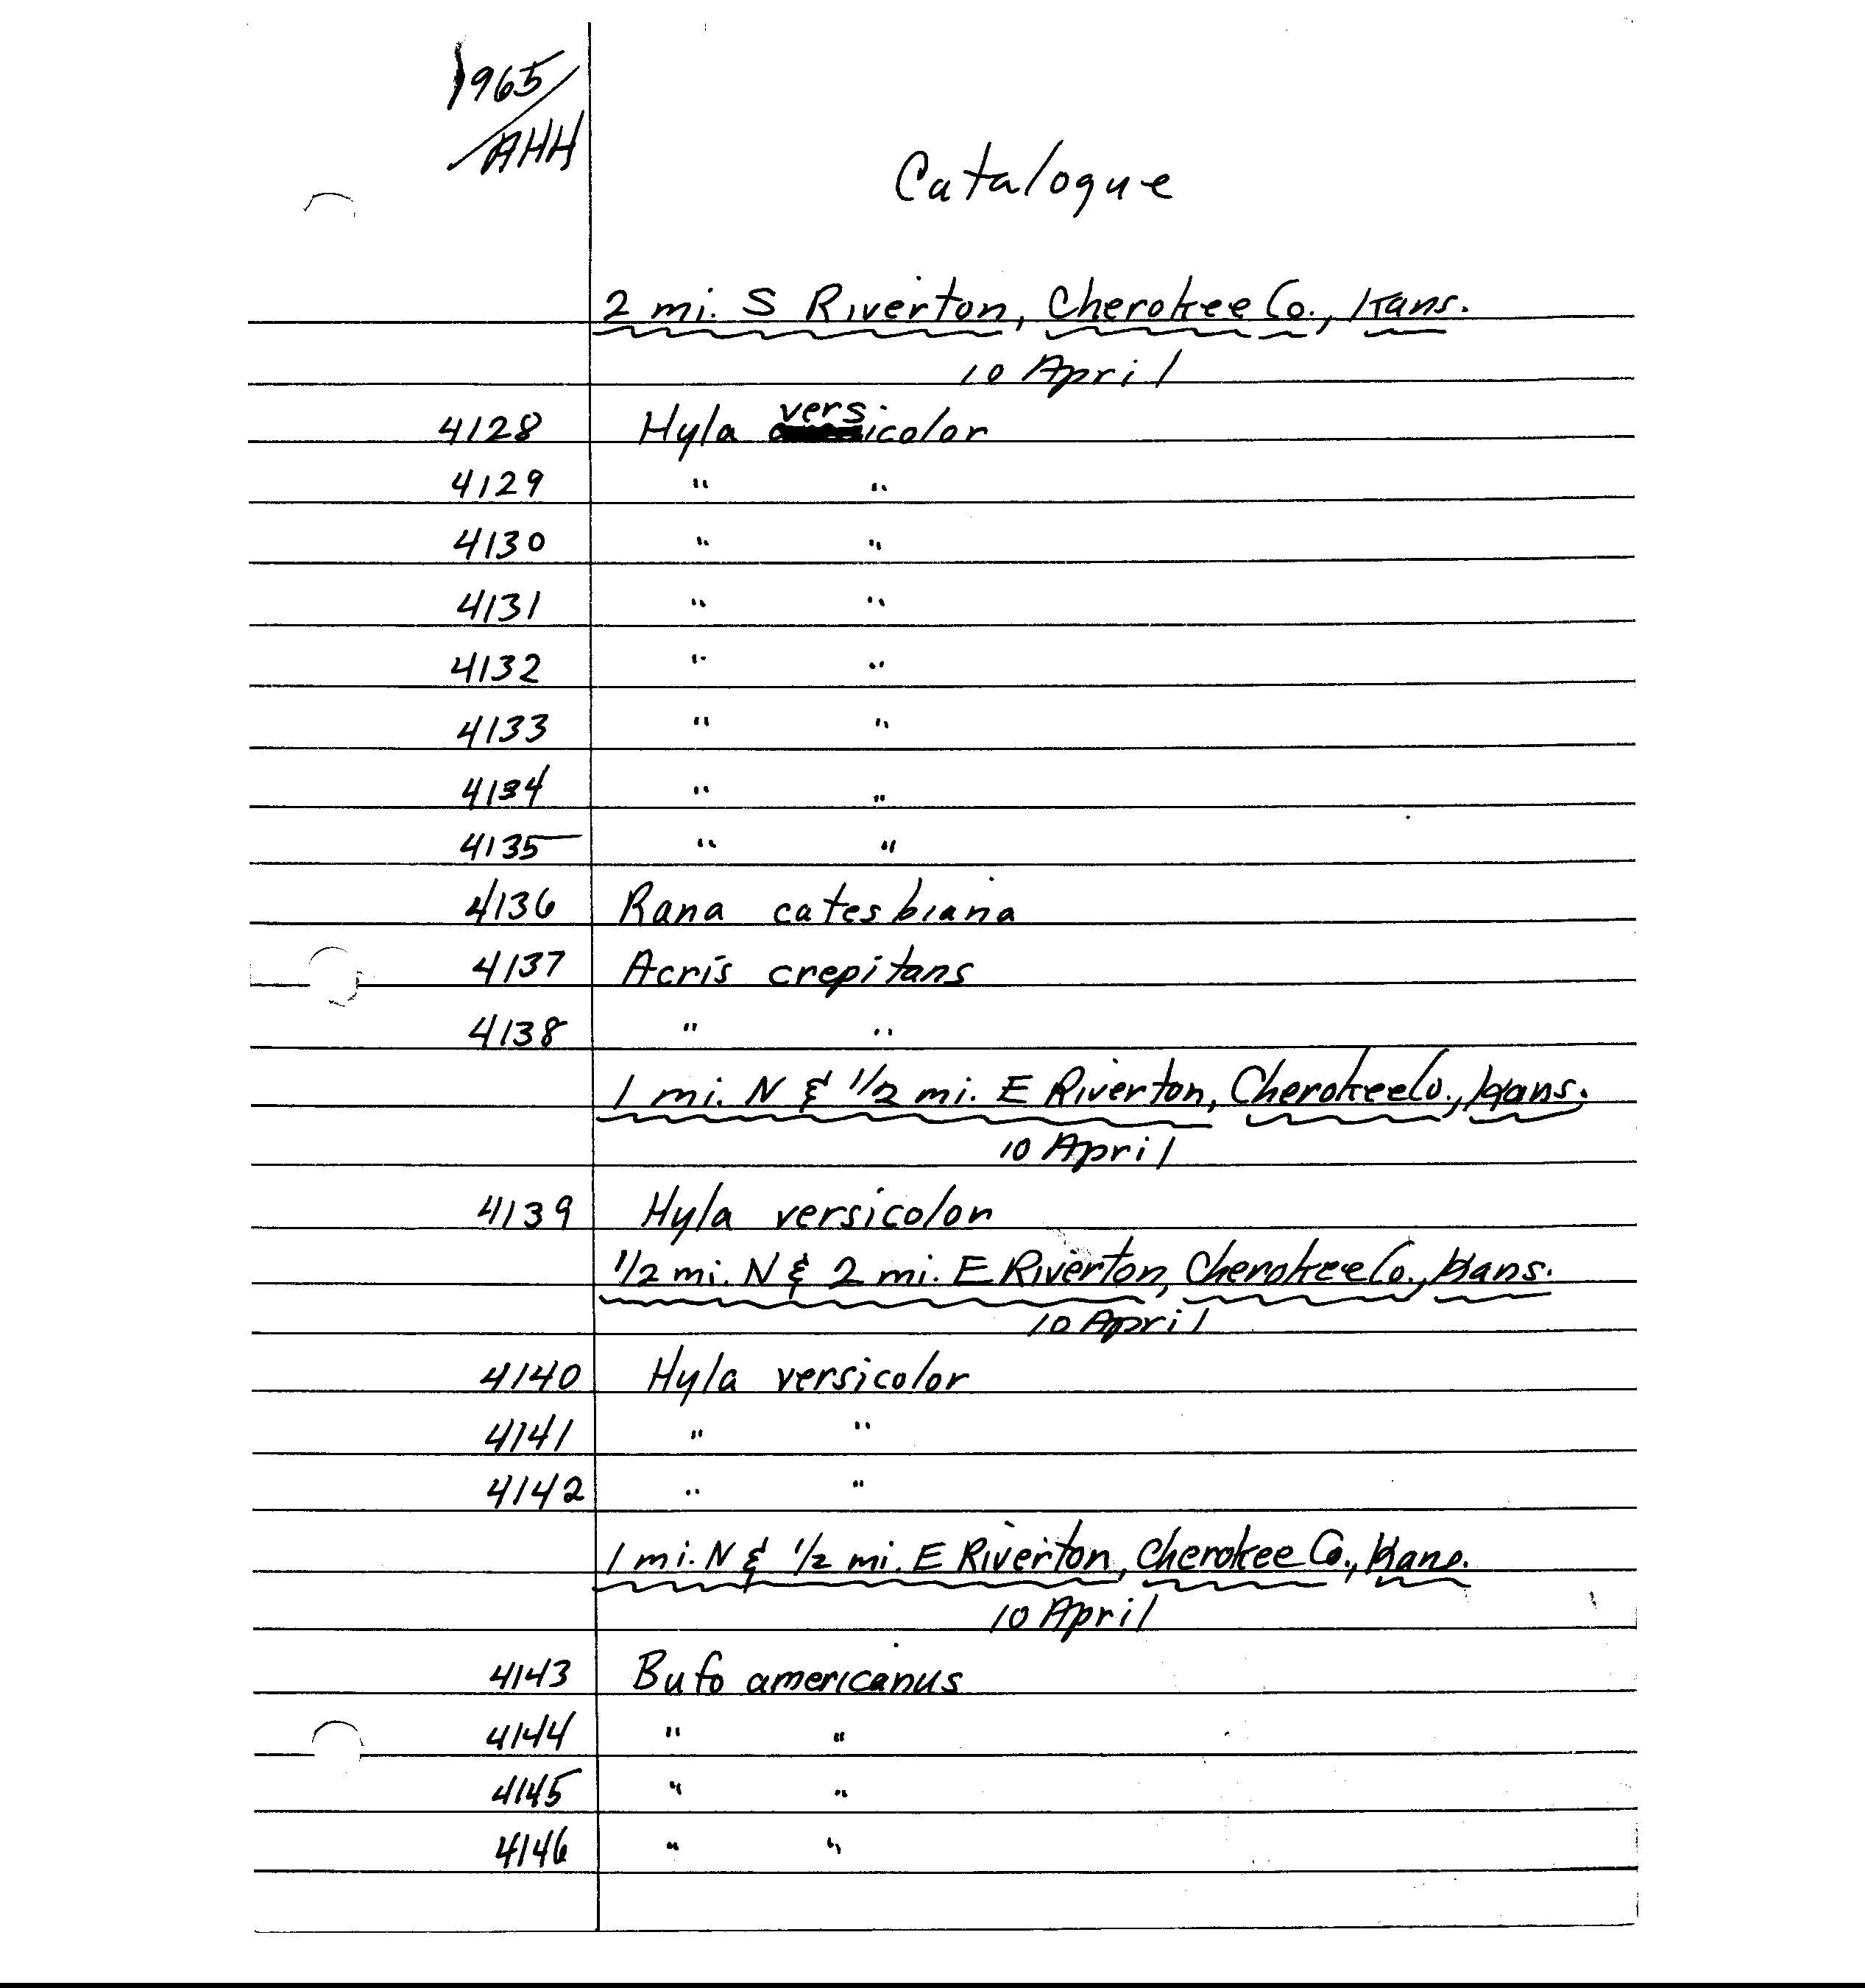 1965/
AHH
Catalogue
2 mi. S Riverton, Cherokee Co., Kans.
10 April
4128 Hyla versicolor
4129 " "
4130 " "
4131 " "
4132 " "
4133 " "
4134 " "
4135 " "
4136 Rana catesbiana
4137 Acris crepitans
4138 " "
1 mi. N & 1/2 mi. E Riverton, Cherokee Co., Kans.
10 April
4139 Hyla versicolor
1/2 mi. N & 2 mi. E Riverton, Cherokee Co., Kans.
10 April
4140 Hyla versicolor
4141 " "
4142 " "
1 mi. N & 1/2 mi. E Riverton, Cherokee Co., Kans.
10 April
4143 Bufo americanus
4144 " "
4145 " "
4146 " "